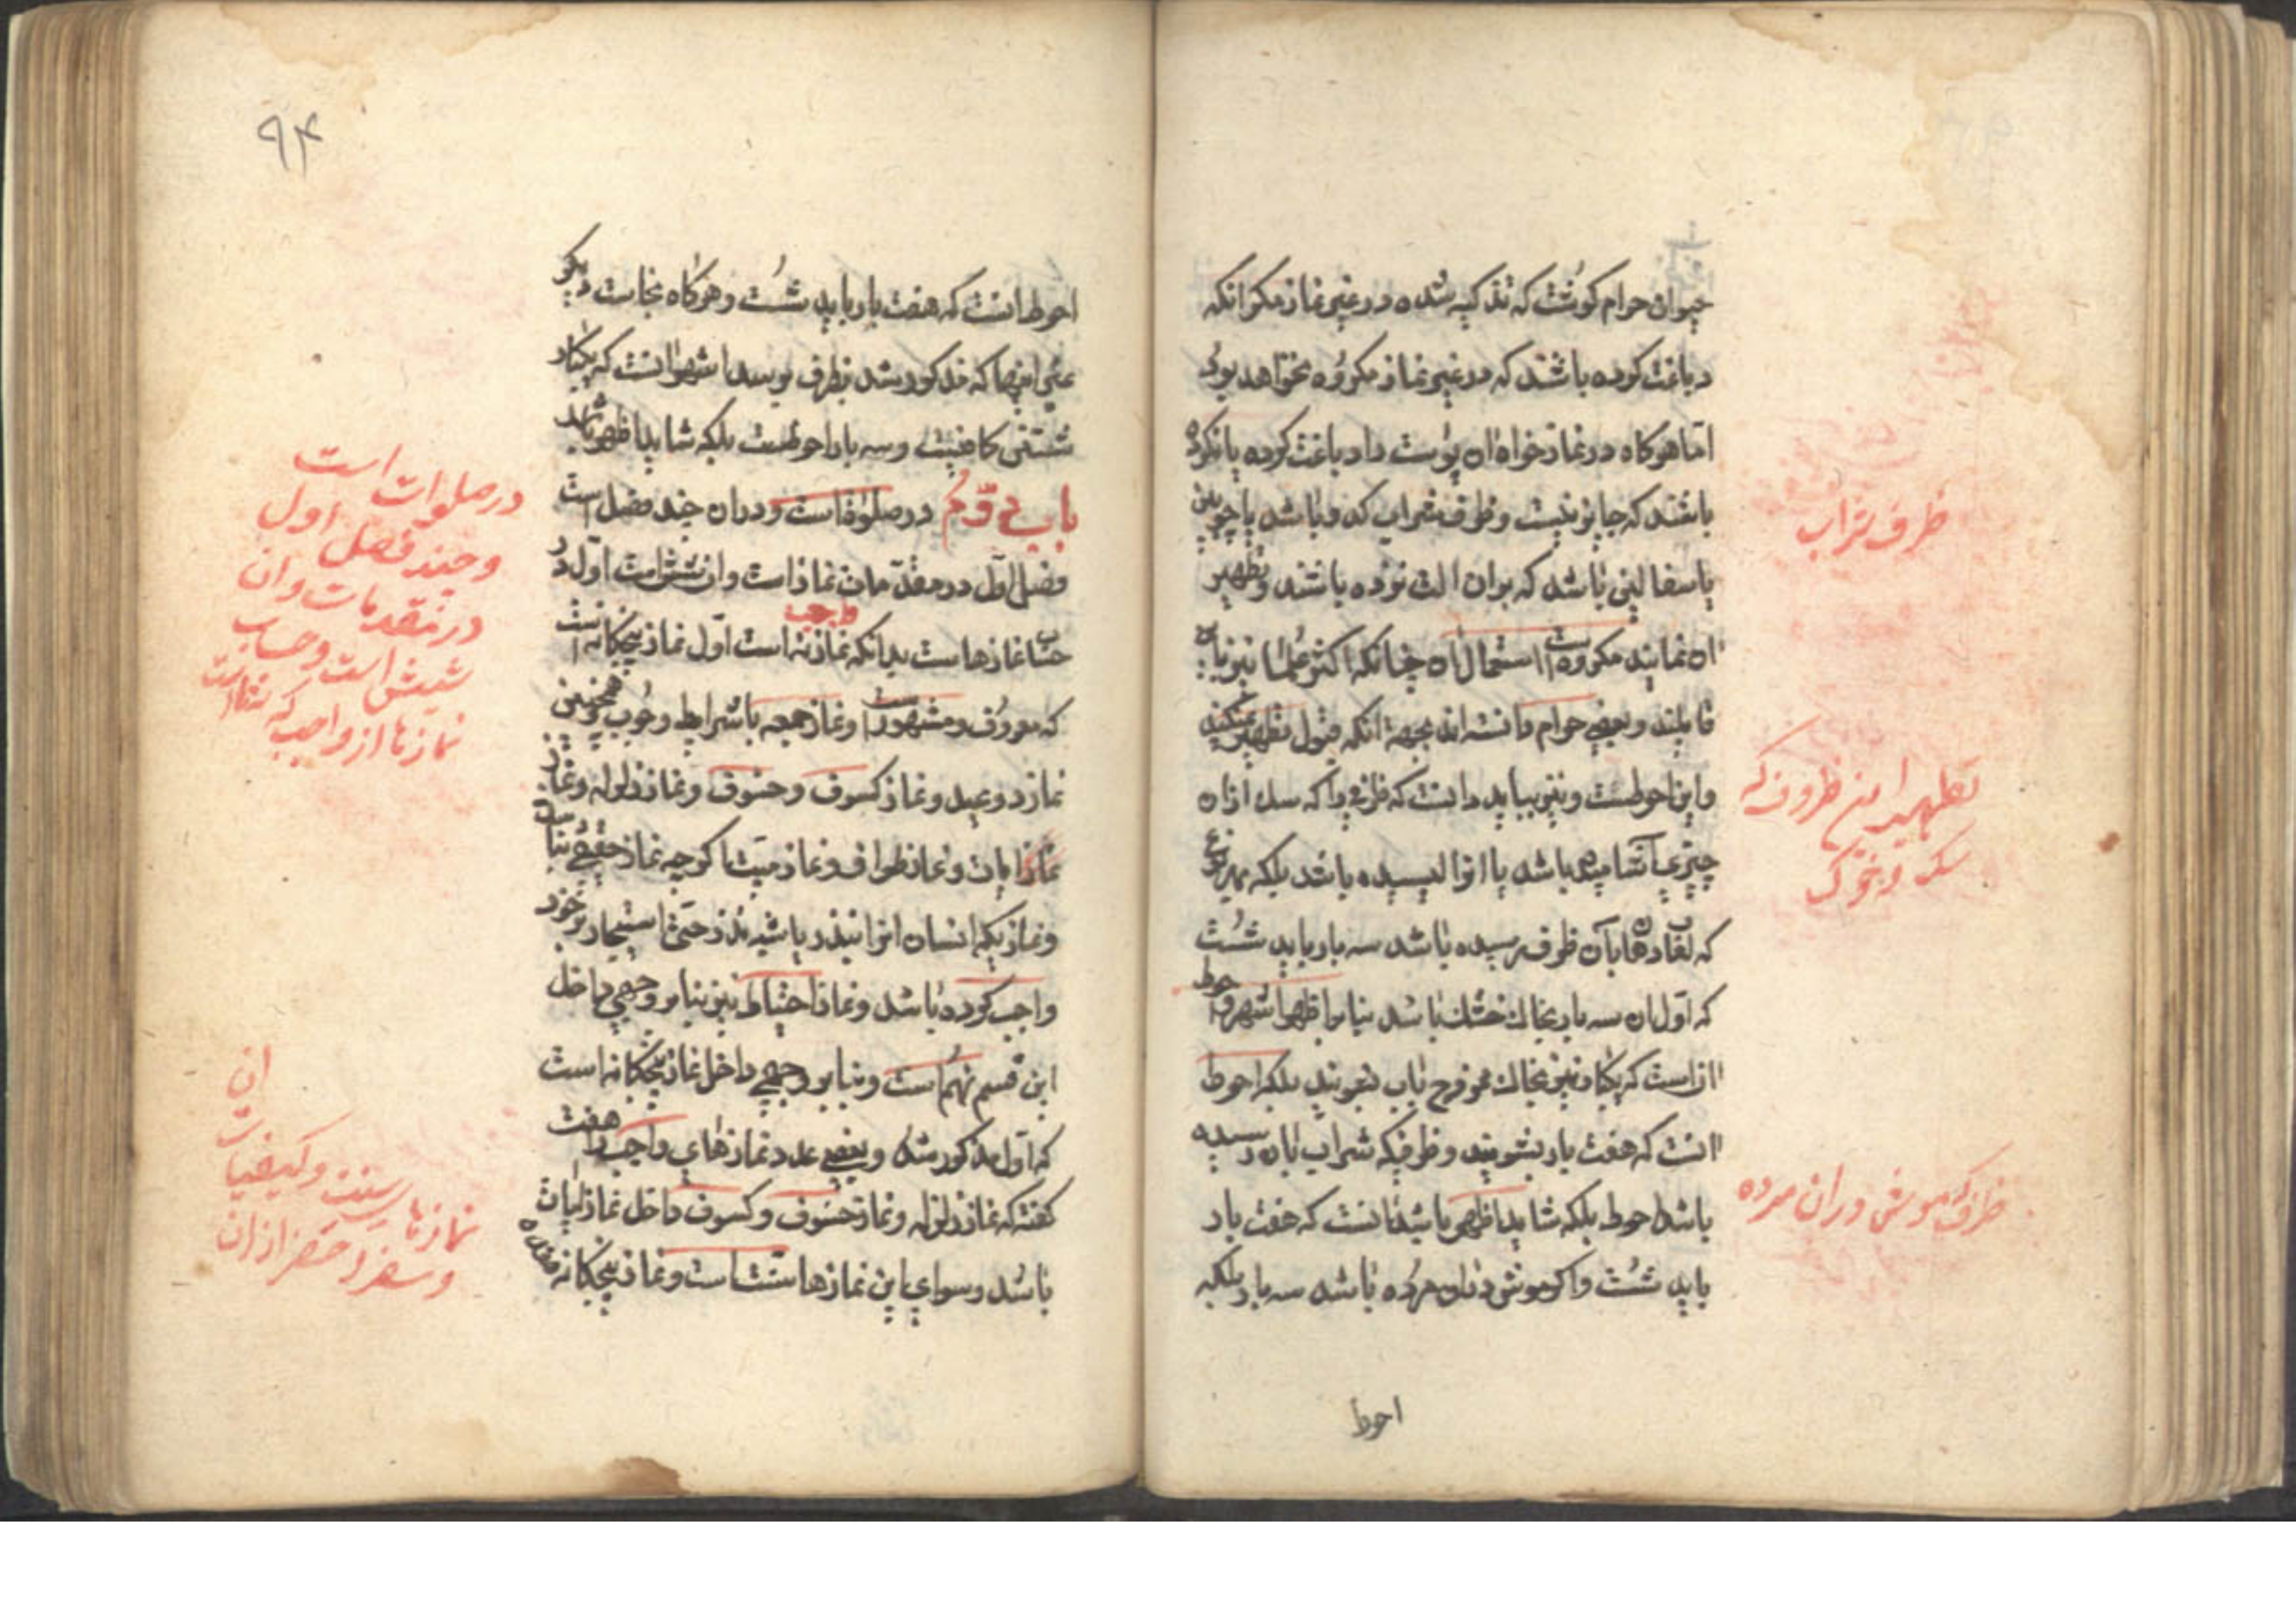 حیوان حرام کوشت که تذکیه شده در غیر نماز مکر انکه
دباغت کرده باشند که در غیر نماز مکروه نخواهد بود
اما هرکاه در نماز خواه ان پوست را دباغت کرده یا نکرده
باشند که جایز نیست و ظرف شراب کدو باشد یا چوبین
یا سفالینی باشد که بران الت نزده باشند و تطهیر
ان نمایند مکروه است استعمال ان چنانکه اکثر علما نیز بان
قایلند و بعضی حرام دانسته اند بجهة انکه قبول تطهیر نمیکند
و این احوطست و نیز بباید دانست که ظرفی را که سک ازان
چیزی آشامیده باشد یا انرا لیسیده باشد بلکه بهر نوع
که لعاب دهان بآن ظرف رسیده باشد سه بار باید شست
که اول ان سه بار بخاک خشک باشد بنا بر اظهر اشهر و احوط
ان است که یکبار نیز بخاک ممزوج باب بشویند بلکه احوط
انست که هفت بار بشویند و ظرفیکه شراب بان رسیده
باشد احوط بلکه شاید اظهر باشد انست که هفت بار
باید شست و اکر موش دران مرده باشد سه بار بلکه
احوط
ظرف شراب
تطهیر این ظروف که
سک و خوک
ظرف که موش دران مرده
۹۴
احوط انست که هفت بار باید شست و هرکاه نجاست دیکر
غیر اینها که مذکور شد بظرف برسد اشهر انست که یکبار
شستنی کافیست و سه بار احوطست بلکه شاید اظهر باشد
باب دوم در صلوة است و دران چند فصل است
فصل اول در مقدمات نماز است و ان شش است اول در
حساب نمازها است بدانکه نماز واجب نه است اول نماز پنجکانه است
که معروف و مشهور است و نماز جمعه با شرایط وجوب همچنین
نماز دو عید و نماز کسوف و خسوف و نماز زلزله و نماز
نماز ایات و نماز طواف و نماز میت اکرچه نماز حقیقی نیست
و نمازیکه انسان انرا بنذر یا شبه نذر حتی استیجار بر خود
واجب کرده باشد و نماز احتیاط نیز بنا بر وجهی داخل
این قسم نهم است و بنا بر وجهی داخل نماز پنجکانه است
که اول مذکور شد و بعضی عدد نمازهای واجب را هفت
کفته که نماز زلزله و نماز خسوف و کسوف داخل نماز ایات
باشد و سوای این نمازها سنت است و نماز پنجکانه هفده
در صلوات است
و چند فصل اول
در مقدمات و ان
شیش است و حساب
نمازها از واجب که نه است
ان
نمازها سنت و کیفیات
و سفر و حضر ازان